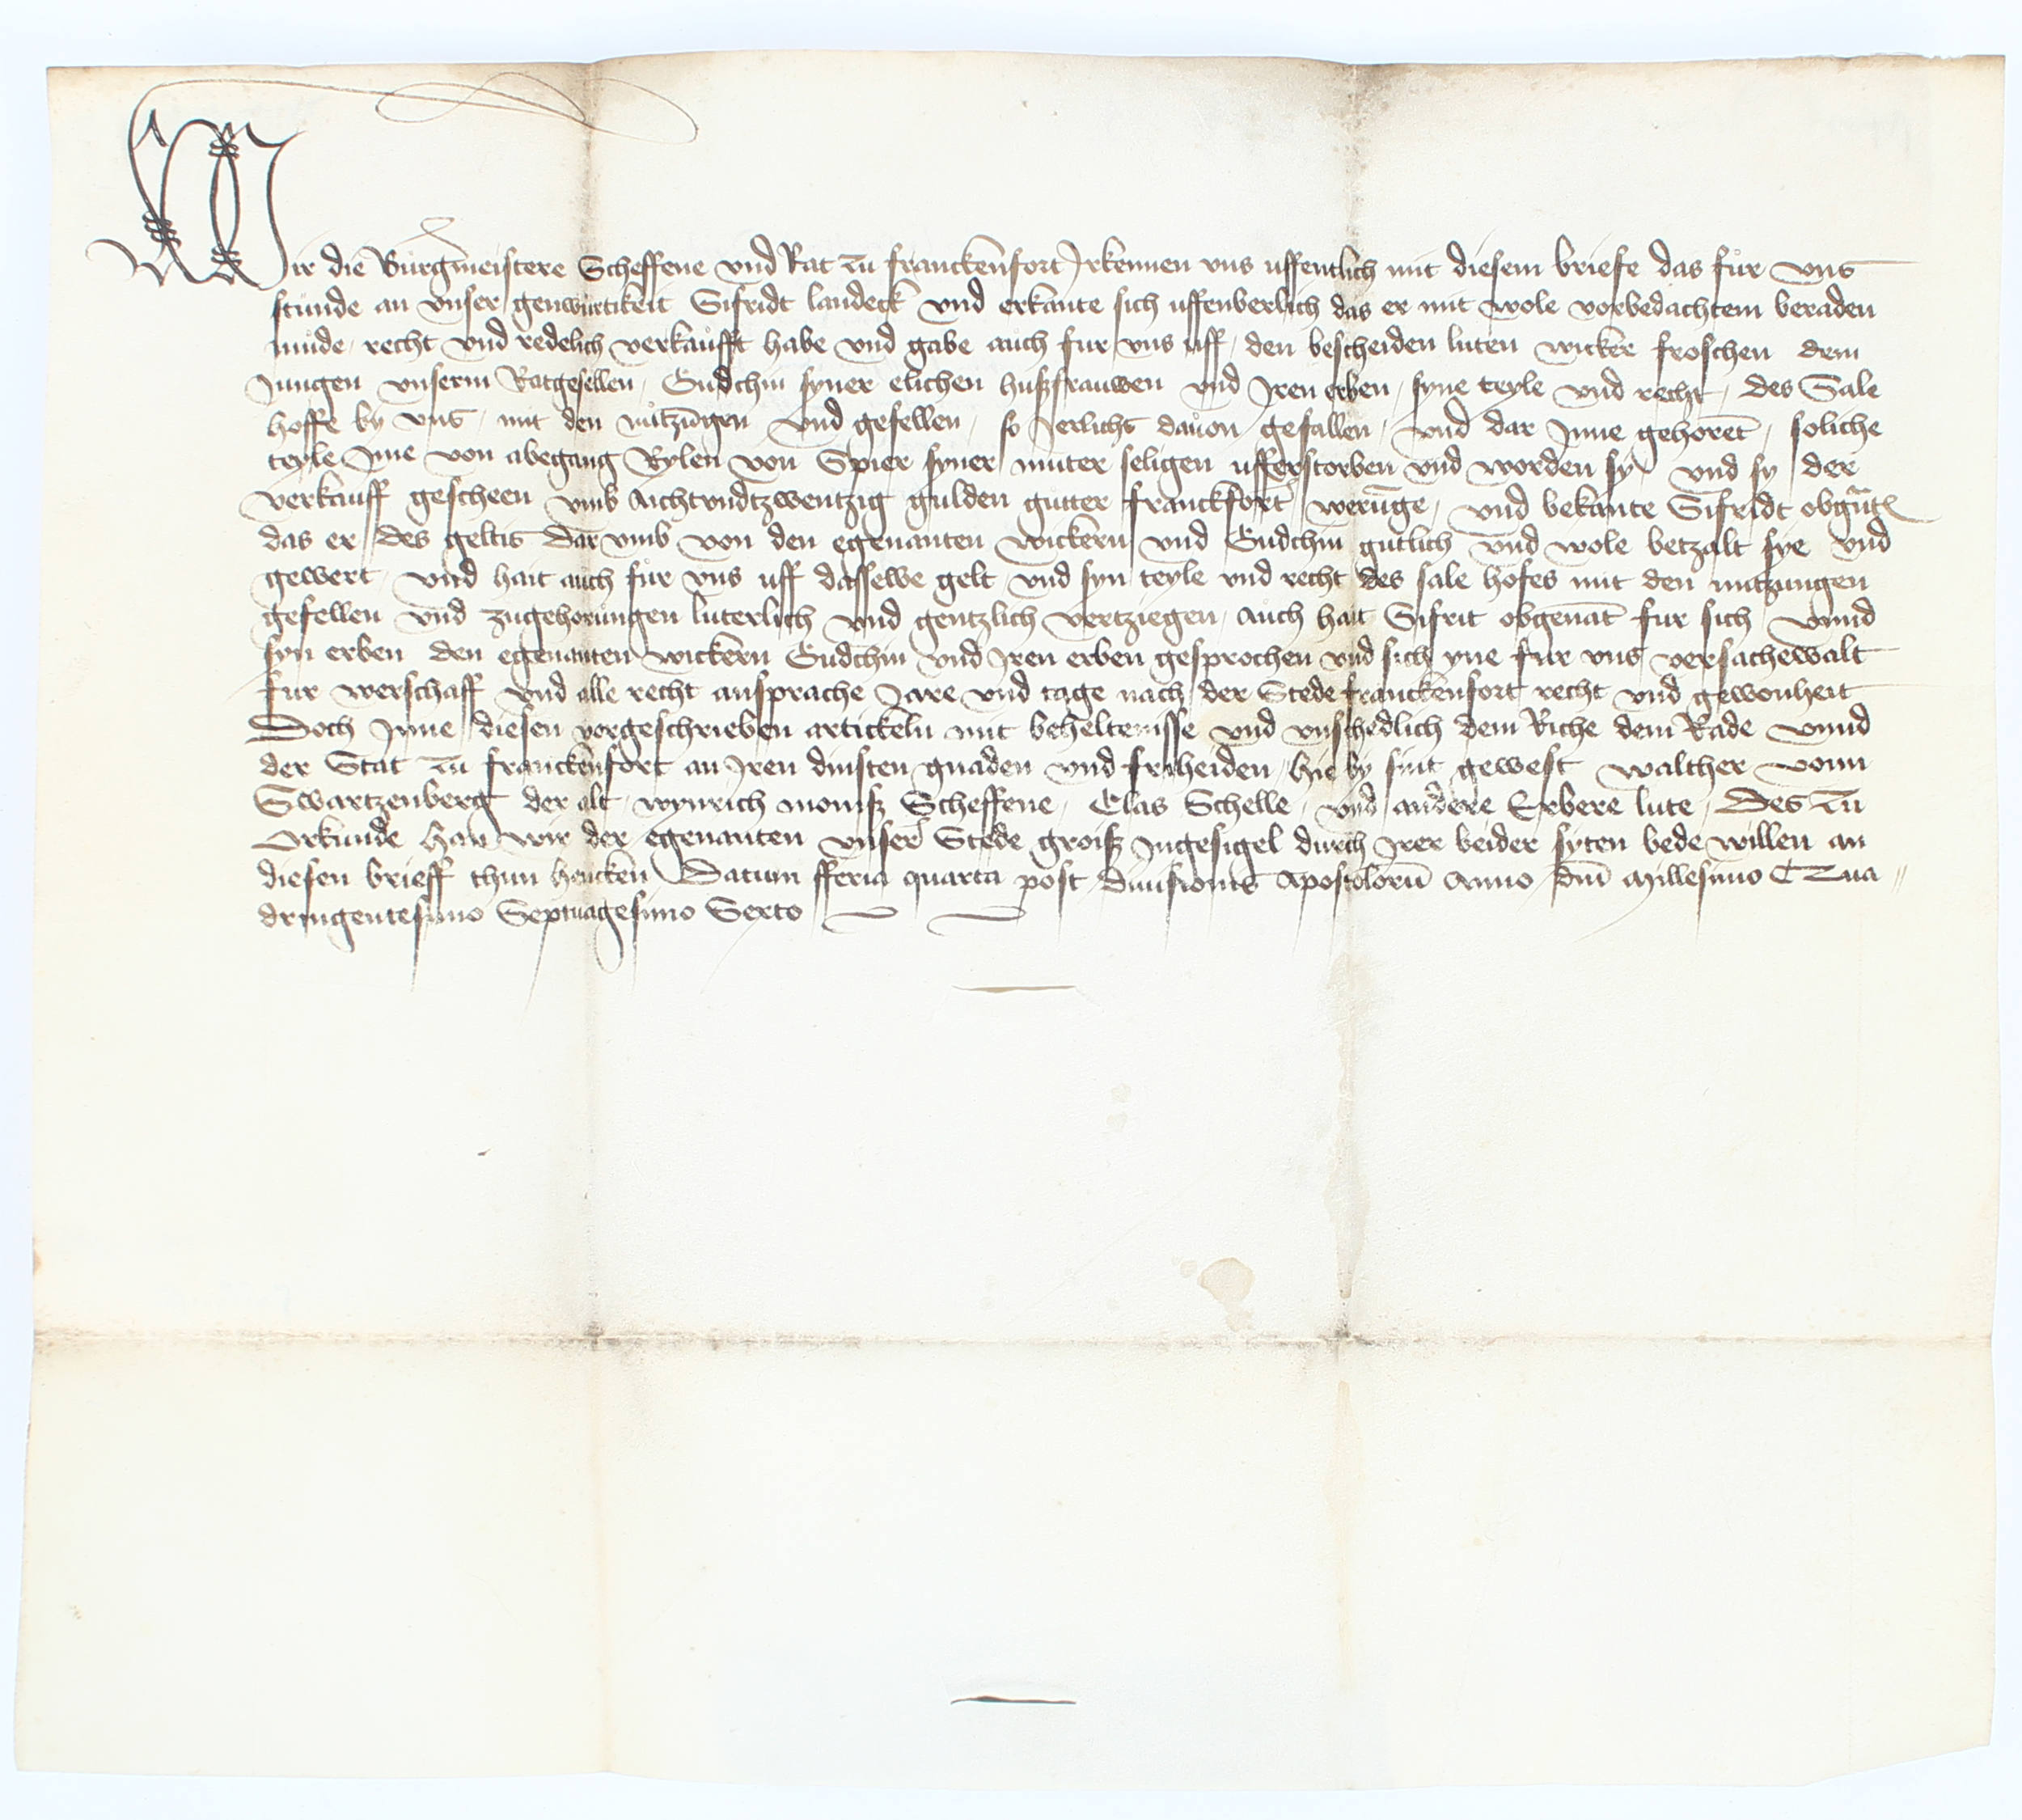 Wir die Burgermeistere Scheffene vnd Rat zu franckenfort Irkennen vns uffentlich mit diesem briefe das fur vns
stunde an vnser genwurtikeit Sifridt landeck vnd erkante sich uffenberlich das er mit wole vorbedachtem beraden
mude, recht vnd redelich verkaufft habe vnd gabe auch fur vns uff, den bescheiden luten wicker froschen dem
Jungen vnserm Ratgesellen, Gudchin syner elichen hußfrauwen vnd Iren erben, syne teyle vnd recht, des Sale
hoffe by vns, mit den nutzungen vnd gefellen, so Jerlichs dauon gefallen, vnd dar Inne gehoret, soliche
teyle Ime von abegang Rylen von Spier syner muter seligen ufferstorben vnd worden sy, vnd sy der
verkauff gescheen vmb Achtvndtzwentzig gulden gutter franckfort werunge, vnd bekante Sifridt obgnt
das er des geltis dar vmb von den egenanten wickern vnd Gudchin gutlich vnd wole betzalt sye vnd
gewert, vnd hait auch fur vns uff dasselbe gelt, vnd syn teyle vnd recht des sale hofes mit den nutzungen
gefellen vnd zugehorungen luterlich vnd gentzlich vertziegen, auch hait Sifrit obgenat fur sich vnnd
syn erben den egenanten wickern Gudchin vnd Iren erben gesprochen vnd sich yne fur vns versachewalt
fur werschaff vnd alle recht ansprache Jare vnd tage nach der Stede franckenfort recht vnd gewonheit
Doch Inne diesen vorgeschrieben artickeln mit beheltenisse vnd vnschedlich dem Riche dem Rade vnnd
der Stat zu franckenfort an Iren dinsten gnaden vnd friheiden, hie by sint gewest walther vonn
Swartzenberg der alt, wynrich moniß Scheffene, Clas Schelle, vnd andere Erbere lute, Des zu
Orkunde han wir der egenanten vnser Stede groiß Ingesigel durch Irer beider syten bede willen an
diesen brieff thun hencken Datum fferia quarta post diuisionis Apostoloru Anno dni Millesimo Qua
dringentesimo Septuagesimo Sexto